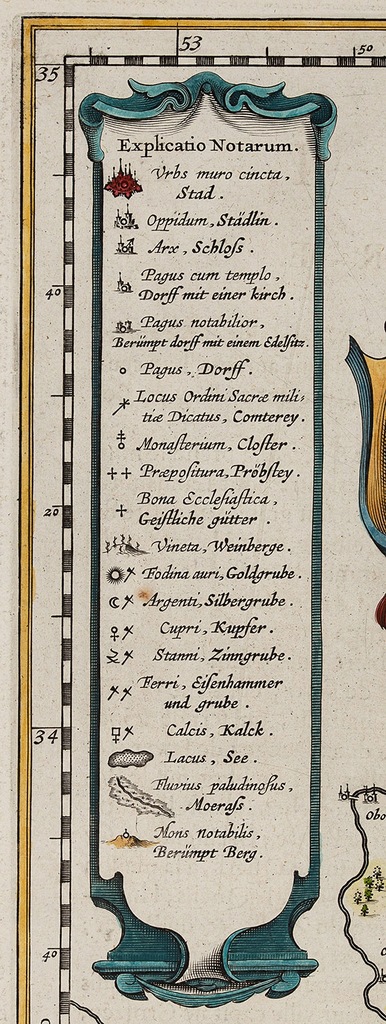 53
50
35
Explicatio Notarum.
Vrbs muro cincta,
Stad.
Oppidum, Städlin.
Arx, Schloſs.
Pagus cum templo,
Dorff mit einer kirch.
40
Pagus notabilior,
Berümpt dorff mit einem Edelſitz.
Pagus, Dorff.
Locus Ordini Sacræ mili-
tiæ Dicatus, Comterey.
Monaſterium, Cloſter.
Præpoſitura, Pröbſtey.
Bona Eccleſiaſtica,
Geiſtliche gütter.
20
Vineta, Weinberge.
Fodina auri, Goldgrube.
Argenti, Silbergrube.
Cupri, Kupfer.
Stanni, Zinngrube.
Ferri, Eiſenhammer
und grube.
34
Calcis, Kalck.
Lacus, See.
Fluvius paludinoſus,
Moeraſs.
Obo
Mons notabilis,
Berümpt Berg.
40